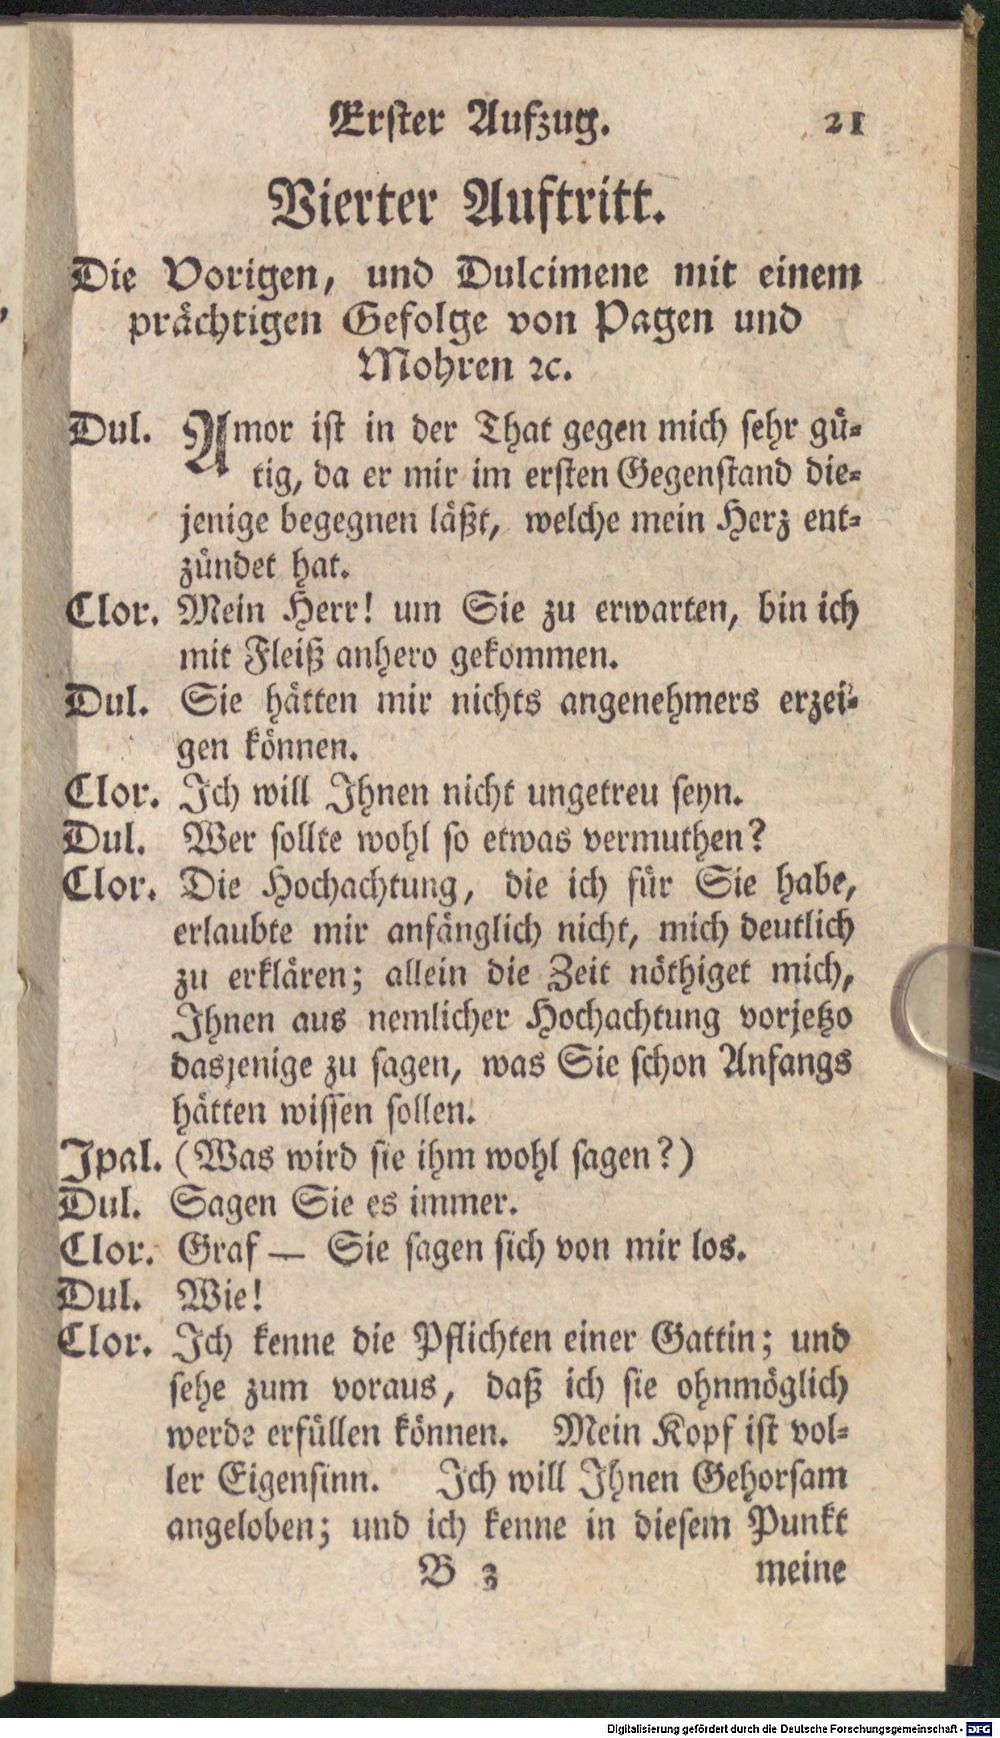 Erster Aufzug. 21
Vierter Auftritt.
Die Vorigen, und Dulcimene mit einem
prächtigen Gefolge von Pagen und
Mohren ꝛc.
Dul. Amor ist in der That gegen mich sehr gü-
tig, da er mir im ersten Gegenstand die-
jenige begegnen läßt, welche mein Herz ent-
zündet hat.
Clor. Mein Herr! um Sie zu erwarten, bin ich
mit Fleiß anhero gekommen.
Dul. Sie hätten mir nichts angenehmers erzei-
gen können.
Clor. Ich will Ihnen nicht ungetreu seyn.
Dul. Wer sollte wohl so etwas vermuthen?
Clor. Die Hochachtung, die ich für Sie habe,
erlaubte mir anfänglich nicht, mich deutlich
zu erklären; allein die Zeit nöthiget mich,
Ihnen aus nemlicher Hochachtung vorjetzo
dasjenige zu sagen, was Sie schon Anfangs
hätten wissen sollen.
Ipal. (Was wird sie ihm wohl sagen?)
Dul. Sagen Sie es immer.
Clor. Graf — Sie sagen sich von mir los.
Dul. Wie!
Clor. Ich kenne die Pflichten einer Gattin; und
sehe zum voraus, daß ich sie ohnmöglich
werde erfüllen können. Mein Kopf ist vol-
ler Eigensinn. Ich will Ihnen Gehorsam
angeloben; und ich kenne in diesem Punkt
B 3 meine
Digitalisierung gefördert durch die Deutsche Forschungsgemeinschaft - DFG